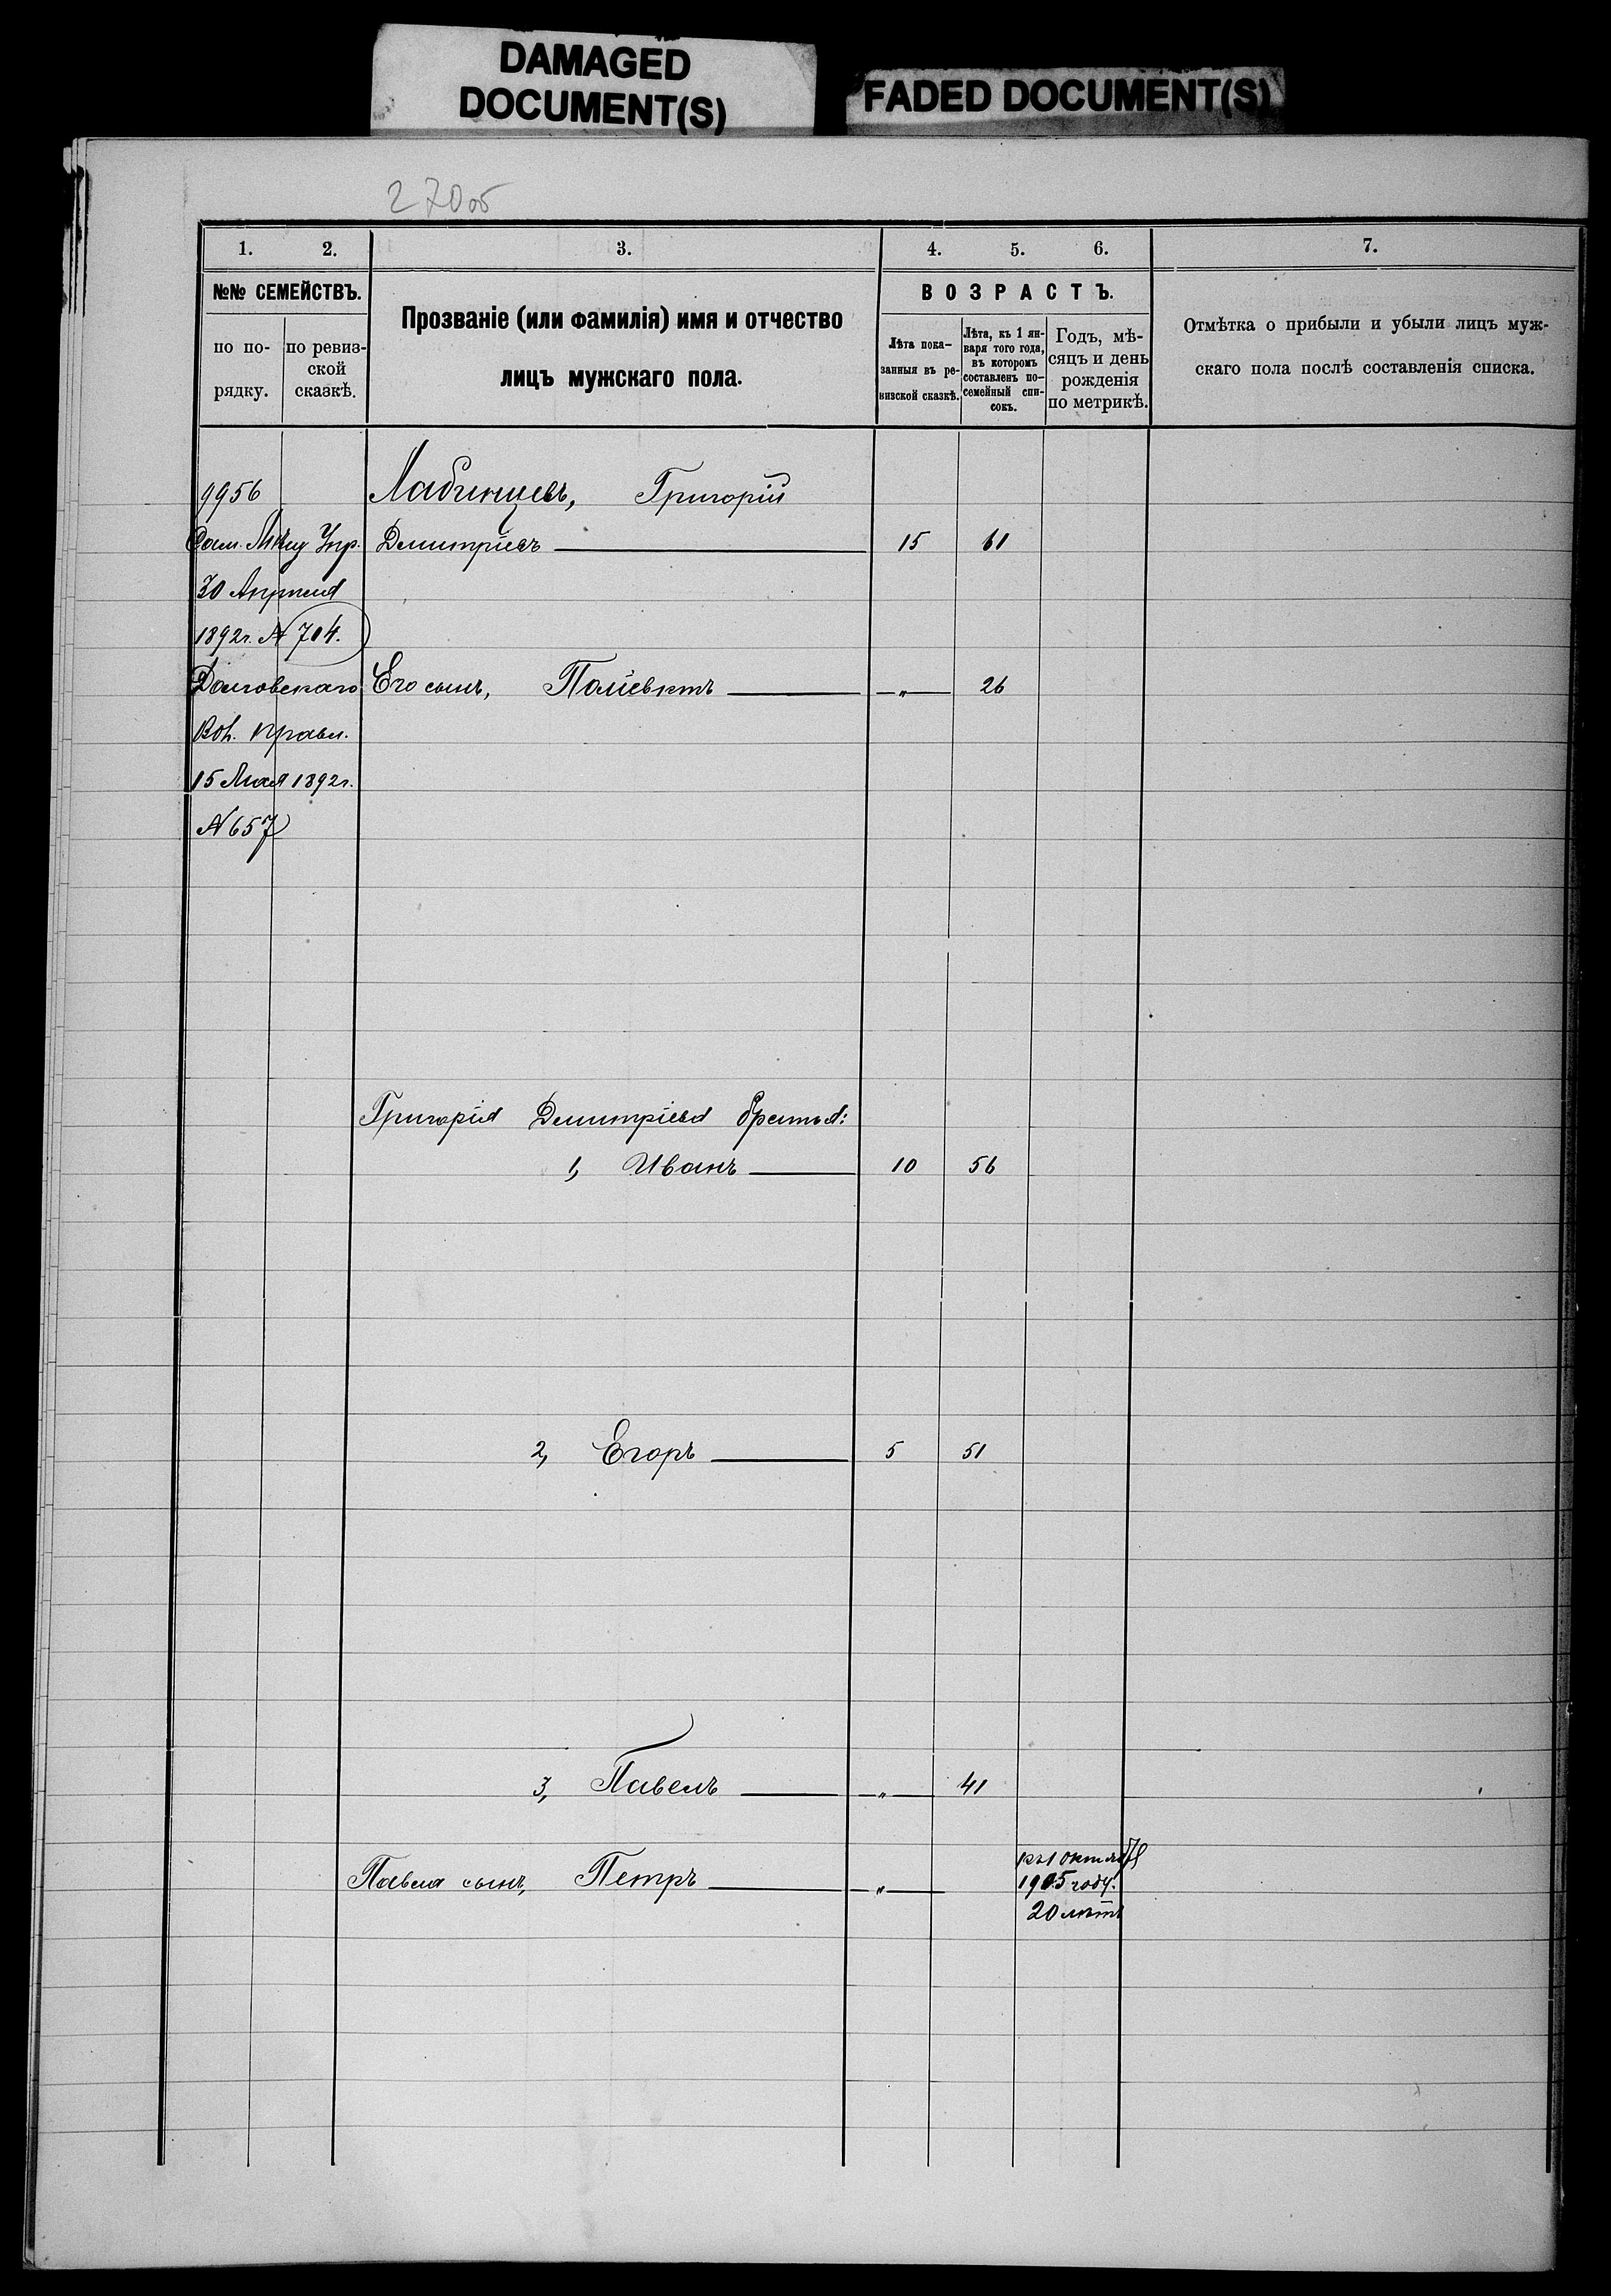 DAMAGED
DOCUMENT(S)
FADED DOCUMENT(S)
270об
1. 2. 3. 4. 5. 6. 7.
№№ СЕМЕЙСТВЪ.
по по-
рядку.
по ревиз-
ской
сказкѣ.
Прозваніе (или фамилія) имя и отчество
лицъ мужскаго пола.
ВОЗРАСТЪ.
Лѣта пока-
занныя въ ре-
визской сказкѣ.
Лѣта, къ 1 ян-
варя того года,
въ которомъ
составленъ по-
семейный спи-
сокъ.
Годъ, мѣ-
сяцъ и день
рожденія
по метрикѣ.
Отмѣтка о прибыли и убыли лицъ муж-
скаго пола послѣ составленія списка.
9956 Лабинцевъ, Григорій
Упр. Димитріевъ 15 61
30 Апрѣля
1892г. № 704.
Долговскаго Его сынъ, Поліевктъ " 26
Вол. Правл.
15 Мая 1892г.
№ 657
Григорія Димитріева братья:
1, Иванъ 10 56
2, Егоръ 5 51
3, Павелъ " 41
Павла сынъ, Петръ "
къ 1 октября
1905 году.
20 лѣтъ